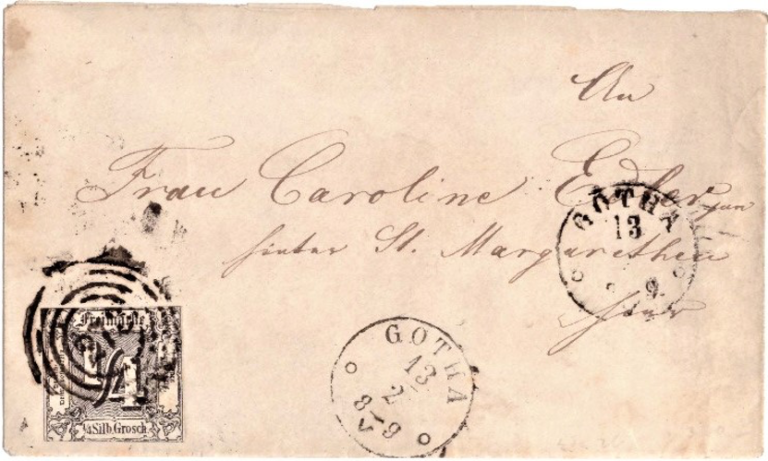 An
Frau Caroline
hinter St. Margarethen
hier
GOTHA
13
9
GOTHA
13
2
8-9
Freimarke
1/4
1/4 Silb. Grosch.